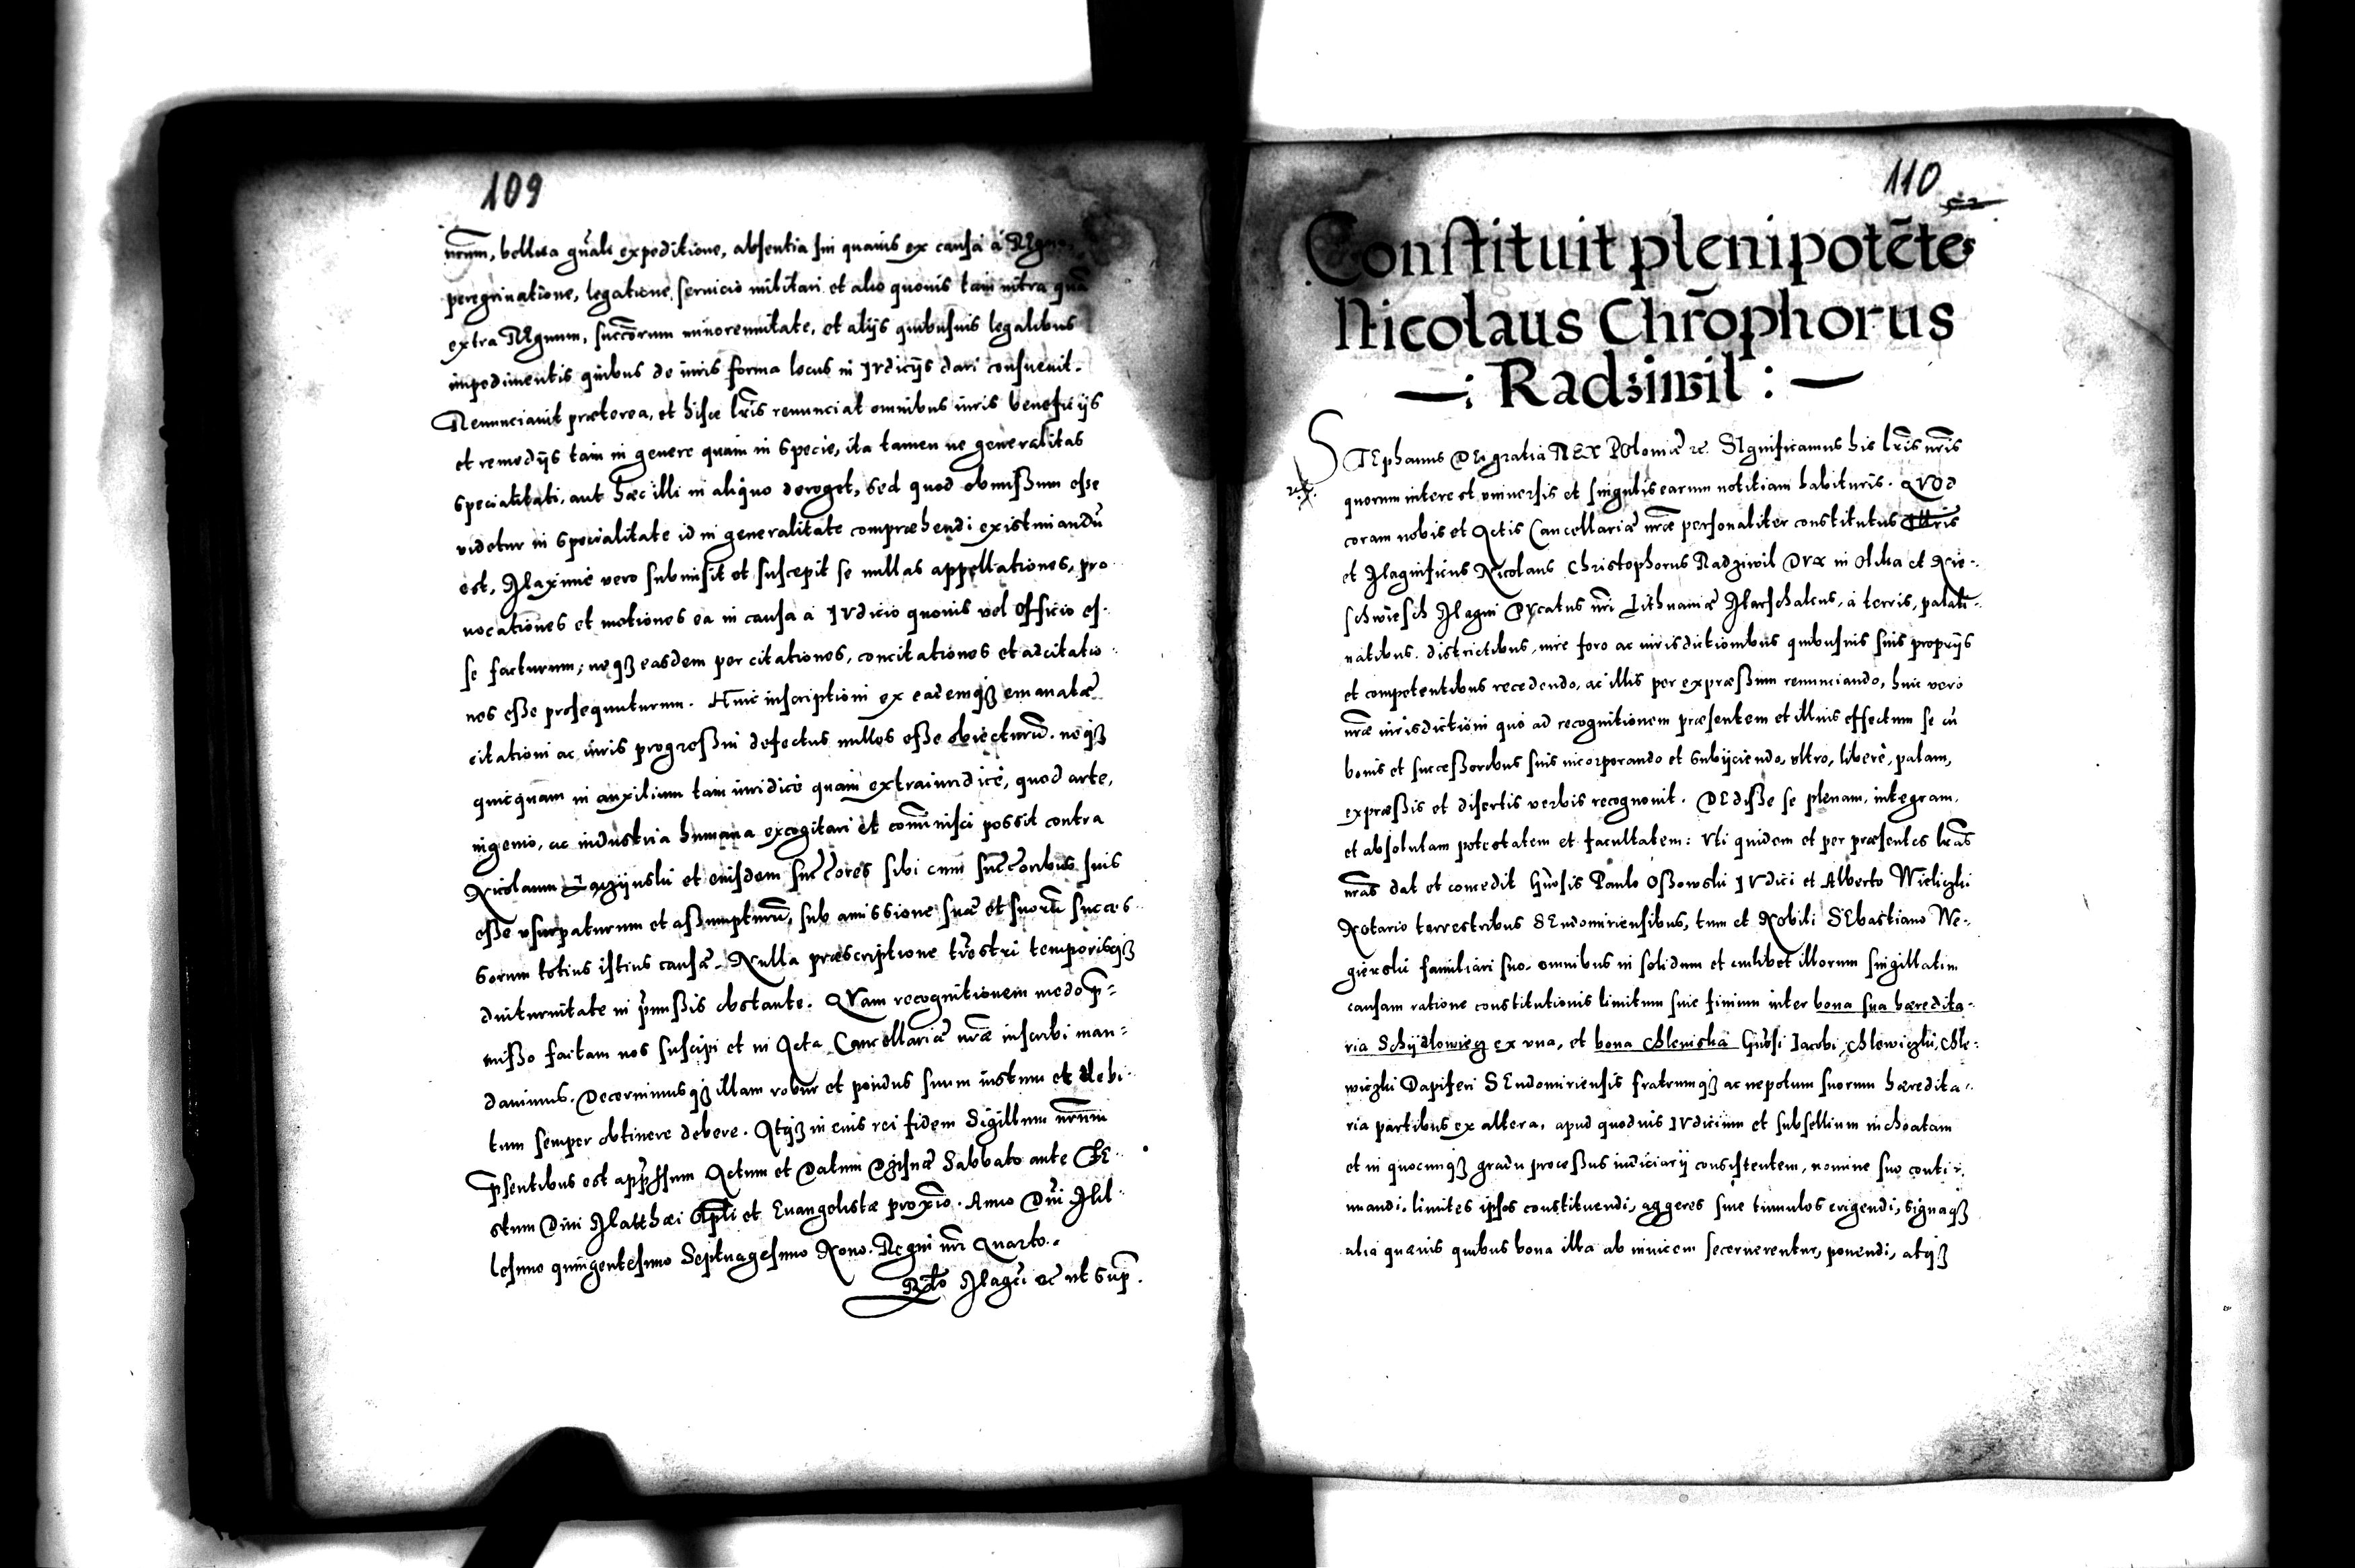 109
nrum, bellica gnali expeditione, absentia sui quavis ex causa a Regno,
peregrinatione, legatione, servicio militari et alio quovis tam intra qua
extra REgnum, succorum minorennitate, et alijs quibusvis legalibus
impedimentis quibus de iuris forma locus in IVdicijs dari consuevit.
Renunciavit præterea, et hisce lris renunciat omnibus iuris beneficijs
et remedijs tam in genere quam in specie, ita tamen ne generalitas
specialitati, aut hæc illi in aliquo deroget, sed quod obmißum eße
videtur in specialitate id in generalitate compræhendi existimandu
est, Maxime vero submisit et suscepit se nullas appellationes, pro
vocationes et motiones ea in causa a IVdicio quovis vel officio es-
se facturum; neqз easdem per citationes, concitationes et adcitatio
nes eße prosequuturum. Huic inscriptioni ex eademqз emanatæ
citationi ac iuris progreßui defectus nullos eße obiecturu. neqз
quicquam in auxilium tam iuridice quam extraiuridice, quod arte,
ingenio, ac industria humana excogitari et cominisci possit contra
Nicolaum et eiusdem succores sibi cum succoribus suis
eße usurpaturum et aßumpturu, sub amissione suæ et suoru succes
sorum totius istius causæ. Nulla præscriptione trestri temporisqз
diuturnitate in pmißis obstante. QVam recognitionem medo p=
mißo factam nos suscipi et in Acta Cancellariæ nræ inscribi man=
davimus. Decernimusqз illam robur et pondus suum iustum et debi
tum semper obtinere debere. Atqз in eius rei fidem Sigillum nrum
psentibus est appssum Actum et Datum Sabbato ante FE
stum Divi Matthæi Apli et Evangelistæ proxio. Anno Dni Mil
lesimo quingentesimo Septuagesimo Nono. Regni nri Quarto.
Rlo Magci &c ut sup.
110
Constituit plenipotẽtes
Nicolaus Chrõphorus
—: Radziwil : —
STEphanus DEi gratia REX POloniæ &c. SIgnificamus his lris nris
quorum interest universis et singulis earum notitiam habituris. QVOd
coram nobis et Actis Cancellariæ nræ personaliter constitutus Illris
et Magnificus Nicolaus Christophorus Radziwil DVx in Olika et Nie-
schwiesch Magni DVcatus nri Lithuaniæ Marschalcus, a terris, palati-
natibus, districtibus, iure foro ac iurisdictionibus quibusvis suis proprijs
et competentibus recedendo, ac illis per expræßum renunciando, huic vero
nræ iurisdictioni quo ad recognitionem præsentem et illius effectum se cu
bonis et succeßoribus suis incorporando et subijciendo, ultro, libere, palam,
expræßis et disertis verbis recognovit. DEdiße se plenam, integram,
et absolutam potestatem et facultatem: Vti quidem et per præsentes lras
nras dat et concedit Gnosis Paulo Oßowski IVdici et Alberto Wieliczki
Notario terrestribus SEndomiriensibus, tum et Nobili SEbastiano We-
gierski familiari suo. omnibus in solidum et cuilibet illorum singillatim
causam ratione constitutionis limitum sive finium inter bona sua hæredita-
ria Schijdlowiecz ex una, et bona Chlewiska Gnosi Iacobi Chlewiczki, Chle:
wiczki Dapiferi SEndomiriensis fratrumqз ac nepotum suorum hæredita-
ria partibus ex altera, apud quodvis IVdicium et subsellium inchoatam
et in quocunqз gradu proceßus iudiciarij consistentem, nomine suo conti-
nuandi. limites ipsos constituendi, aggeres sive tumulos erigendi, signaqз
alia quævis quibus bona illa ab invicem secernerentur, ponendi, atqз